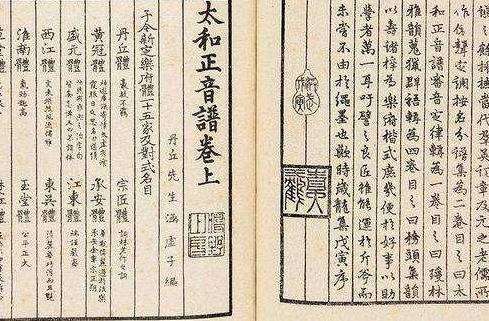 採摭當代群英詞章及元之老儒所
作依聲定調按名分譜集為二卷目之曰太
和正音譜審音定律輯為一卷目之曰瓊林
雅韻蒐獵群語輯為四卷目之曰務頭集韻
以壽諸梓為樂府楷式庶幾便於好事以助
學者萬一耳吁譬之良匠雖能運於斤斧而
未嘗不由於繩墨也歟時歲龍集戊寅序
太和正音譜卷上
丹丘先生涵虛子編
予今新定樂府體一十五家及對式名目
丹丘體 豪放不羈
宗匠體 詞林老作之詞
黃冠體 神遊廣漠寄情太虛有餐霞服日之思名曰道情
承安體 華觀偉麗過於泆樂承安金章宗正朔
盛元體 快然有雍熙之治字句皆無忌憚又曰不諱體
江東體 端謹嚴密
西江體 文采煥然風流儒雅
東吳體 清麗華巧浮而且艷
淮南體 氣勁趣高
玉堂體 公平正大